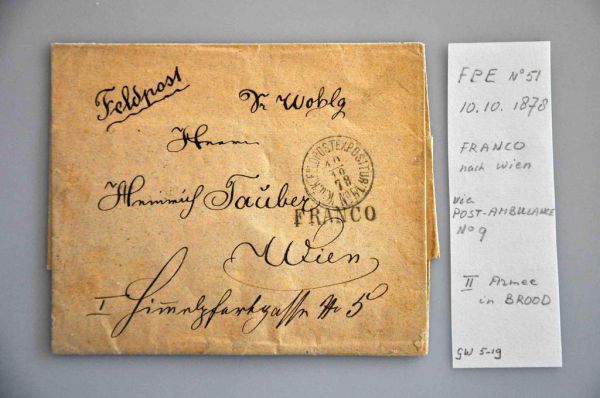 Feldpost
Sr Wohlg
Herrn
Heinrich Tauber
FRANCO
Wien
I Himmelpfortgasse No 5
K.u.K. FELDPOSTEXPOSITUR
10
10
78
FPE No 51
10.10.1878
FRANCO
nach Wien
via
POST-AMBULANCE
No 9
II Armee
in BROOD
GW 5-19